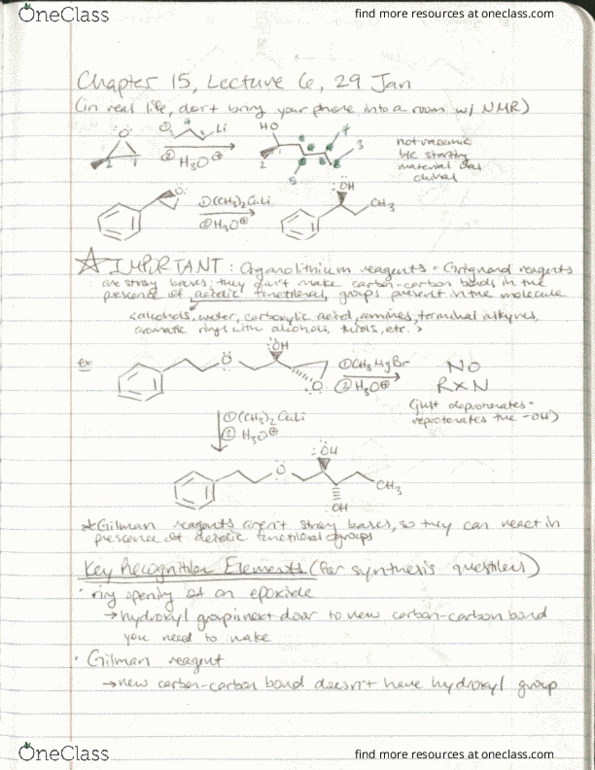 OneClass
find more resources at oneclass.com
Chapter 15, Lecture 6, 29 Jan
(in real life, don't bring your phone into a room w/ NMR)
① Li
② H₃O⊕
HO
2 1
2 1 3 4 5
not racemic
b/c starting
material was
chiral
① (CH₃)₂CuLi
② H₃O⊕
:ÖH
CH₃
☆ IMPORTANT: Organolithium reagents + Grignard reagents
are strong bases, they don't make carbon-carbon bonds in the
presence of acidic functional groups present in the molecule
<alcohols, water, carboxylic acid, amines, terminal alkynes,
aromatic rings with alcohols, thiols, etc.>
ex
Ö
:ÖH
O
① CH₃MgBr
② H₃O⊕
NO
RXN
(just deprotonates +
reprotonates the -OH)
① (CH₃)₂CuLi
② H₃O⊕
Ö
:ÖH
CH₃
:OH
*Gilman reagents aren't strong bases, so they can react in
presence of acidic functional groups
Key Recognition Elements (for synthesis questions)
· ring opening of an epoxide
→ hydroxyl group next door to new carbon-carbon bond
you need to make
· Gilman reagent
→ new carbon-carbon bond doesn't have hydroxyl group
OneClass
find more resources at oneclass.com